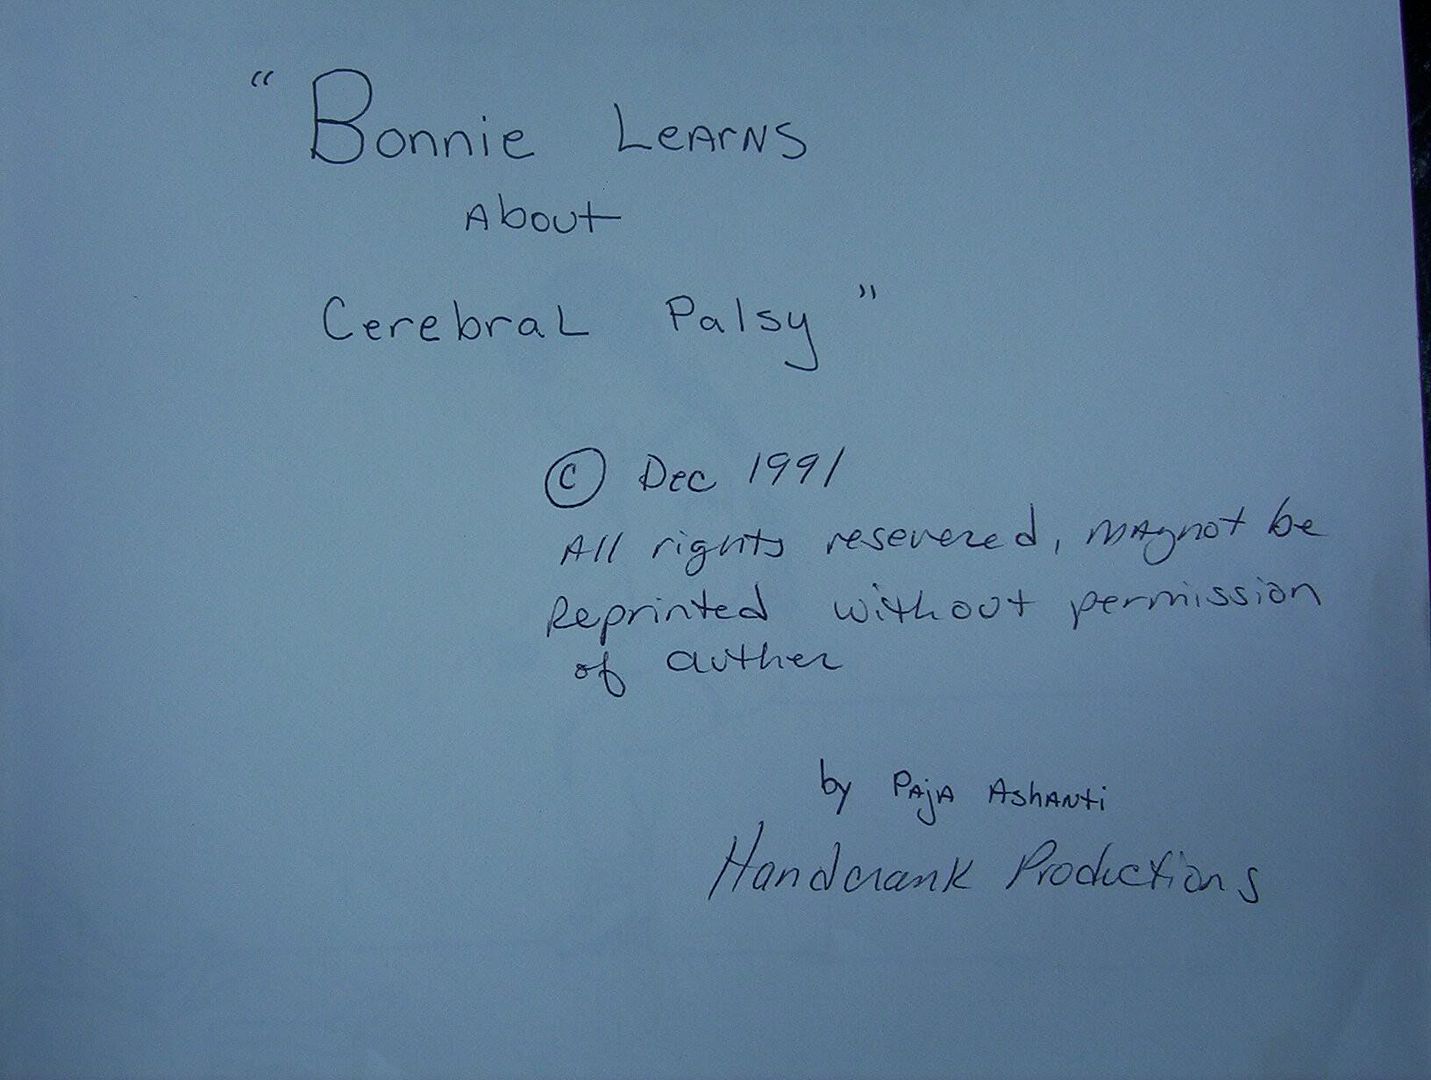 “ Bonnie Learns
About
Cerebral Palsy ”
© Dec 1991
All rights resevered, maynot be
Reprinted without permission
of auther
by Paja Ashanti
Handcrank Productions